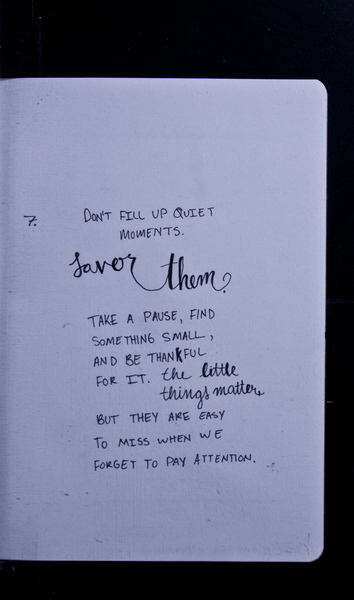 7. DON'T FILL UP QUIET
MOMENTS.
savor them.
TAKE A PAUSE, FIND
SOMETHING SMALL,
AND BE THANKFUL
FOR IT. the little
things matter,
BUT THEY ARE EASY
TO MISS WHEN WE
FORGET TO PAY ATTENTION.